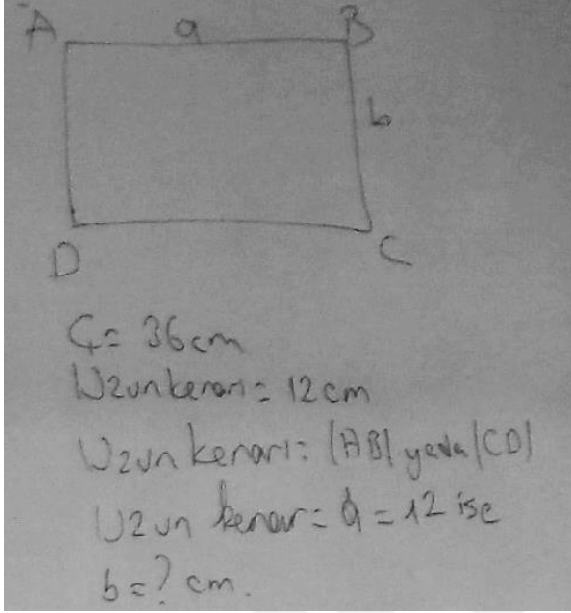 A a B
b
D C
Ç= 36cm
Uzunkenarı= 12cm
Uzun kenarı= |AB| yada |CD|
Uzun kenar= a = 12 ise
b=? cm.